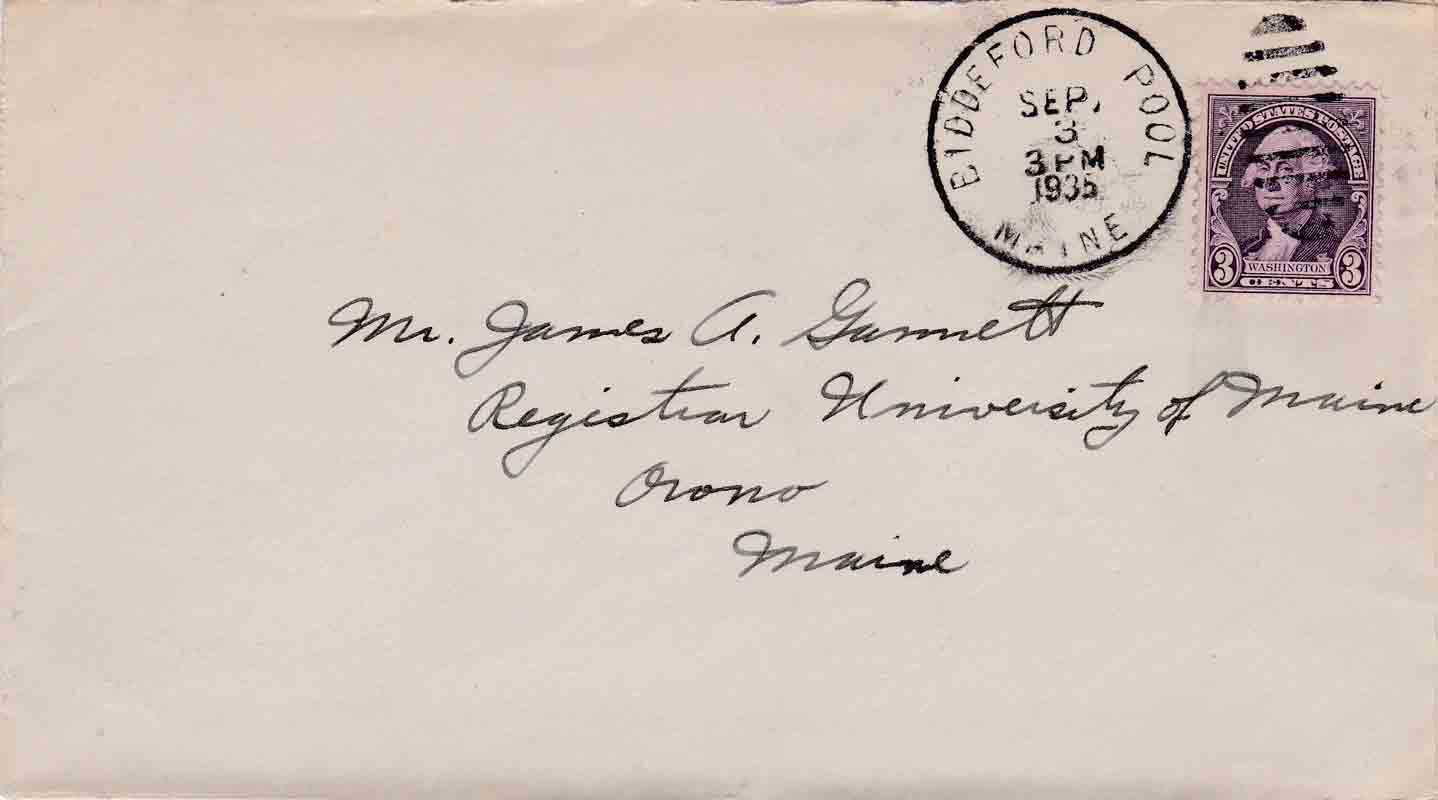 BIDDEFORD POOL
SEP.
3
3 PM
1935
MAINE
UNITED STATES POSTAGE
3 WASHINGTON 3
CENTS
Mr. James A. Gannett
Registrar University of Maine
Orono
Maine